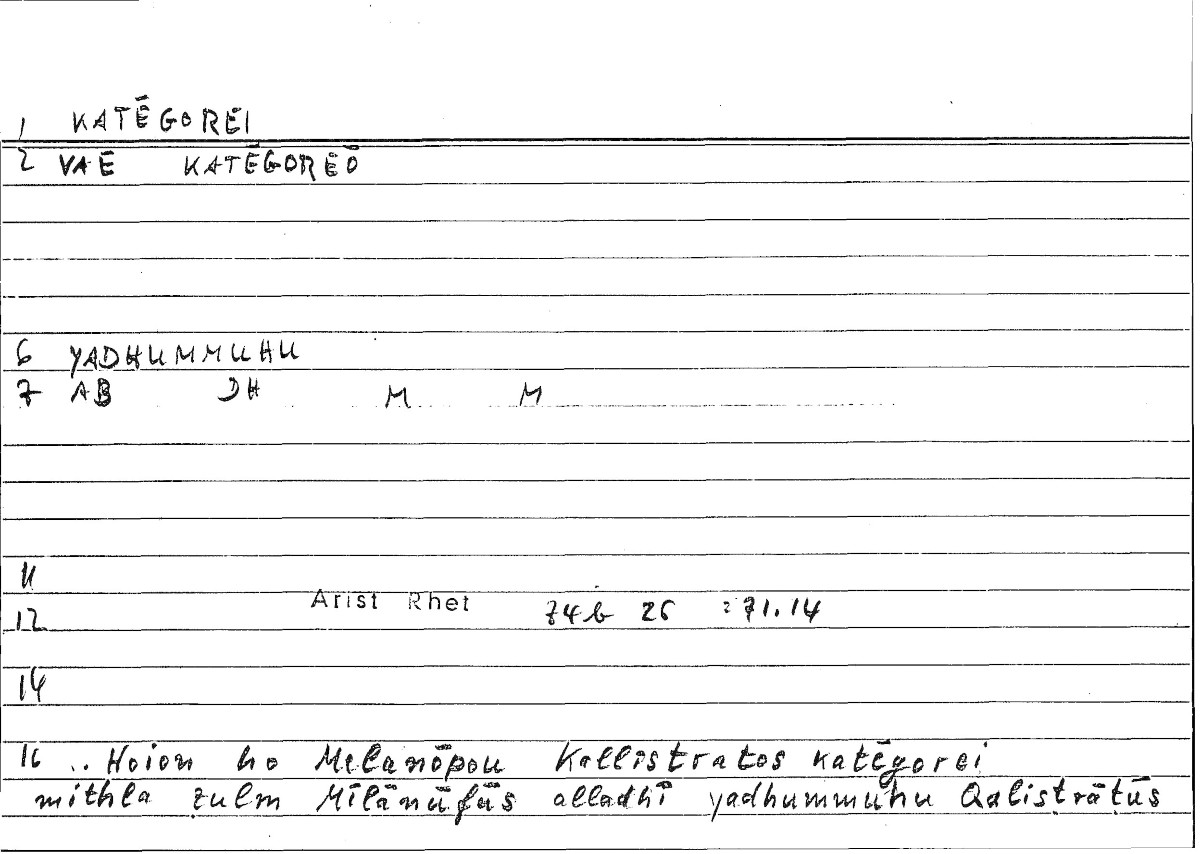 1 KATĒGOREI
2 VAE KATĒGOREŌ
6 YADHUMMUHU
7 AB DH M M
11
12 Arist Rhet 74b 26 :71.14
14
16 .. Hoion ho Melanōpou Kallistratos katēgorei
mithla ẓulm Mīlānūfūs alladhī yadhummuhu Qalisṭrāṭūs